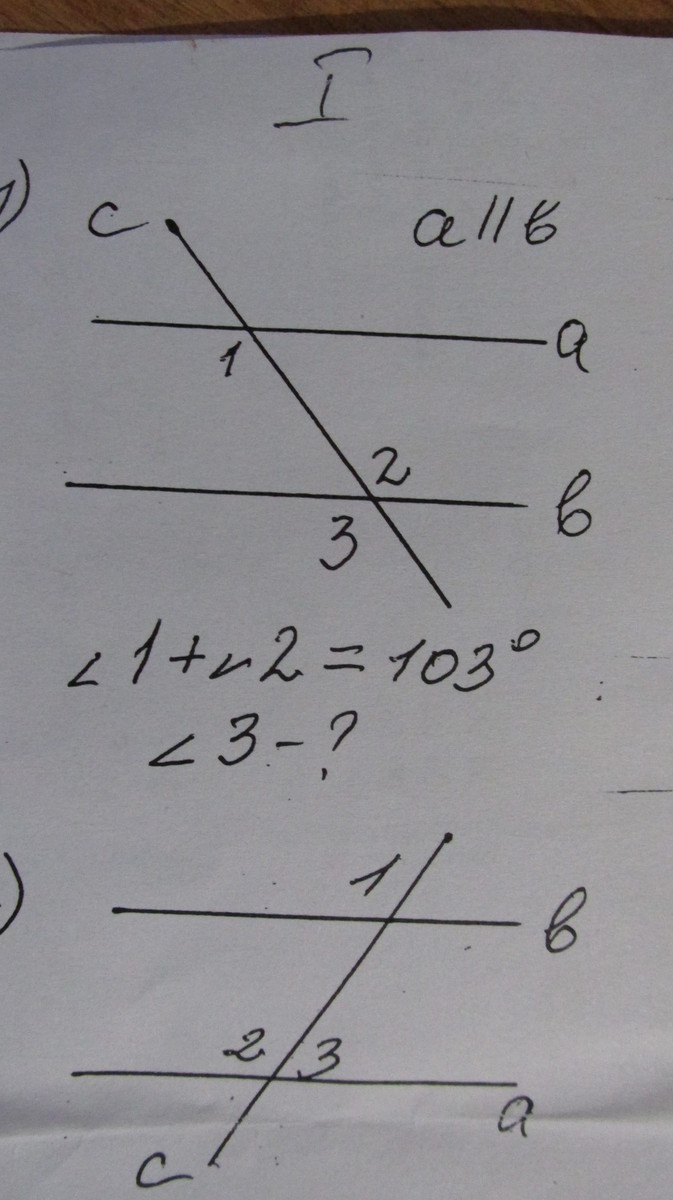 I
1)
c a || в
a
1
2
в
3
∠1+∠2=103°
∠3-?
)
1
в
2 3
a
c